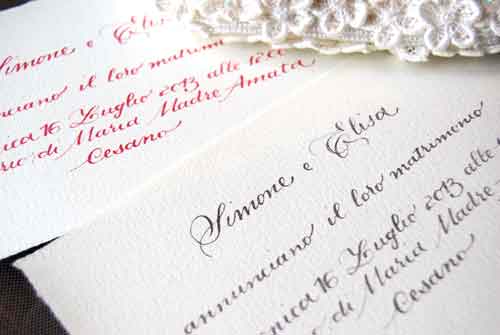 Simone e Elisa
nunciano il loro matrimoni
nica 16 Luglio 2013 alle
rio di Maria Madre Amata
Cesano
Simone e Elisa
annunciano il loro matrimonio
nica 16 Luglio 2013 alle
rio di Maria Madre
Cesano